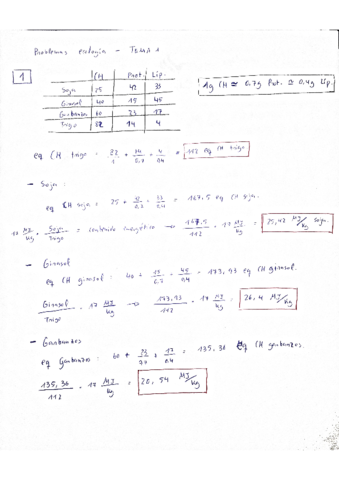 Problemas ecología - Tema 1
1
CH Prot. Lip.
Soja 25 42 33
Girasol 40 15 45
Garbanzos 60 23 17
Trigo 82 14 4
1g CH ≅ 0.7g Prot. ≅ 0,4g Lip.
eq CH trigo = 82/1 + 14/0.7 + 4/0.4 = 112 eq CH trigo
- Soja :
eq CH soja = 25 + 42/0.7 + 33/0.4 = 167,5 eq CH soja.
17 MJ/kg · Soja/Trigo = contenido energético → 167,5/112 · 17 MJ/kg = 25,42 MJ/kg soja.
- Girasol
eq CH girasol = 40 + 15/0.7 + 45/0.4 = 173,93 eq CH girasol.
Girasol/Trigo · 17 MJ/kg → 173,93/112 · 17 MJ/kg = 26,4 MJ/kg
- Garbanzos
eq Garbanzos = 60 + 23/0.7 + 17/0.4 = 135,36 eq CH garbanzos.
135,36/112 · 17 MJ/kg = 20,54 MJ/kg